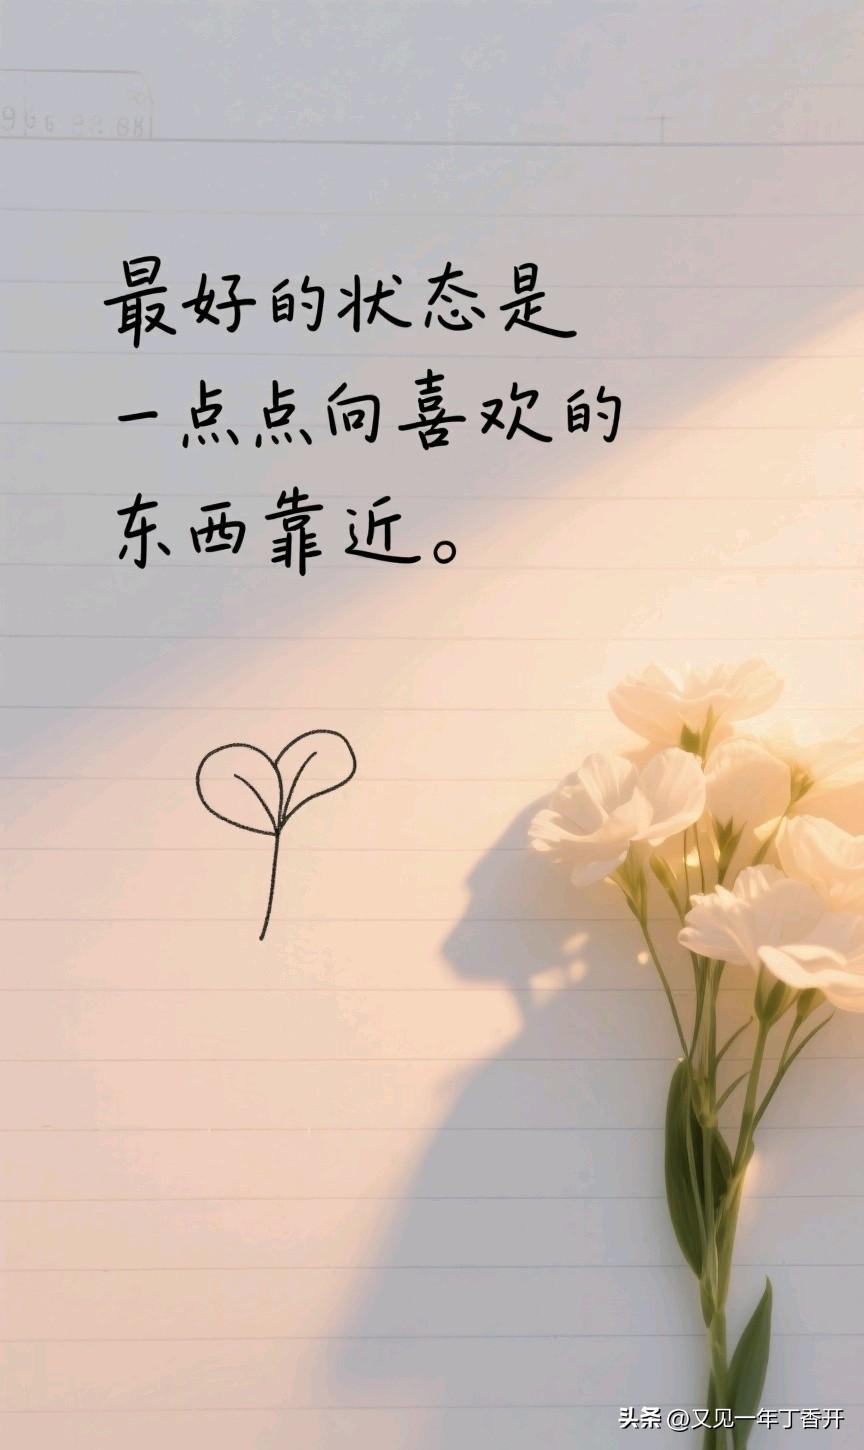 最好的状态是
一点点向喜欢的
东西靠近。
头条 @又见一年丁香开